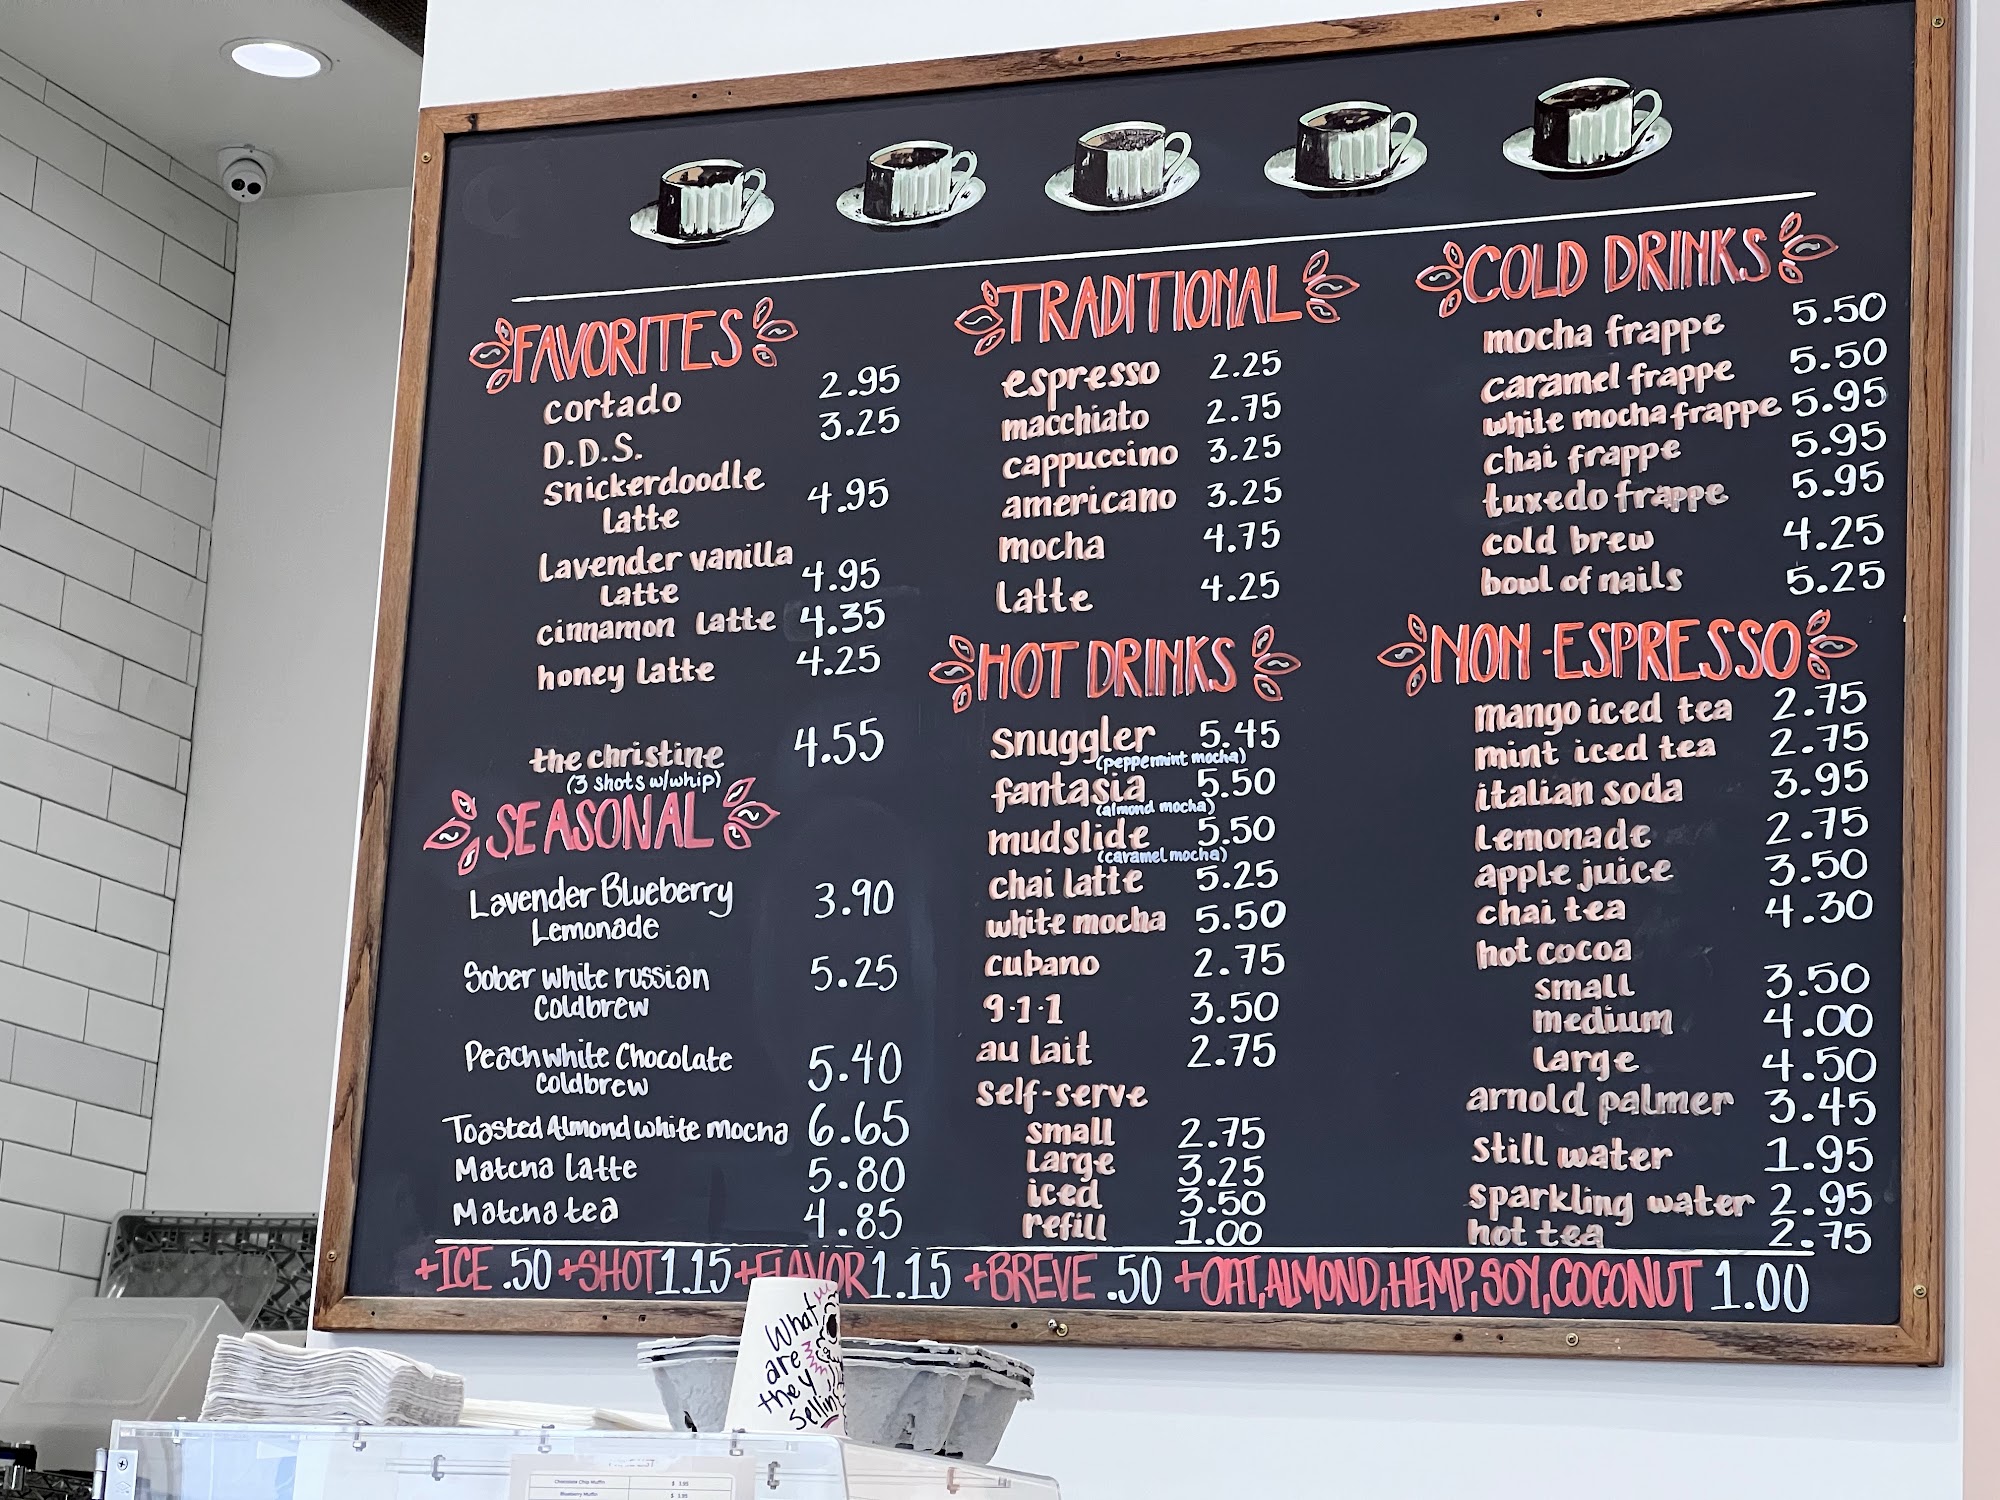 FAVORITES
cortado 2.95
D.D.S. 3.25
snickerdoodle
latte 4.95
Lavender vanilla
latte 4.95
cinnamon latte 4.35
honey latte 4.25
the christine 4.55
(3 shots w/whip)
SEASONAL
Lavender Blueberry
Lemonade 3.90
Sober white russian
Coldbrew 5.25
Peach white Chocolate
Coldbrew 5.40
Toasted Almond white mocha 6.65
Matcha Latte 5.80
Matcha tea 4.85
TRADITIONAL
espresso 2.25
macchiato 2.75
cappuccino 3.25
americano 3.25
mocha 4.75
latte 4.25
HOT DRINKS
snuggler 5.45
(peppermint mocha)
fantasia 5.50
(almond mocha)
mudslide 5.50
(caramel mocha)
chai latte 5.25
white mocha 5.50
cubano 2.75
9-1-1 3.50
au lait 2.75
self-serve
small 2.75
large 3.25
iced 3.50
refill 1.00
COLD DRINKS
mocha frappe 5.50
caramel frappe 5.50
white mocha frappe 5.95
chai frappe 5.95
tuxedo frappe 5.95
cold brew 4.25
bowl of nails 5.25
NON-ESPRESSO
mango iced tea 2.75
mint iced tea 2.75
italian soda 3.95
lemonade 2.75
apple juice 3.50
chai tea 4.30
hot cocoa
small 3.50
medium 4.00
large 4.50
arnold palmer 3.45
still water 1.95
sparkling water 2.95
hot tea 2.75
+ICE .50 +SHOT 1.15 +FLAVOR 1.15 +BREVE .50 +OAT, ALMOND, HEMP, SOY, COCONUT 1.00
What
are
they
Sellin
Chocolate Chip Muffin $ 3.95
Blueberry Muffin $ 3.95